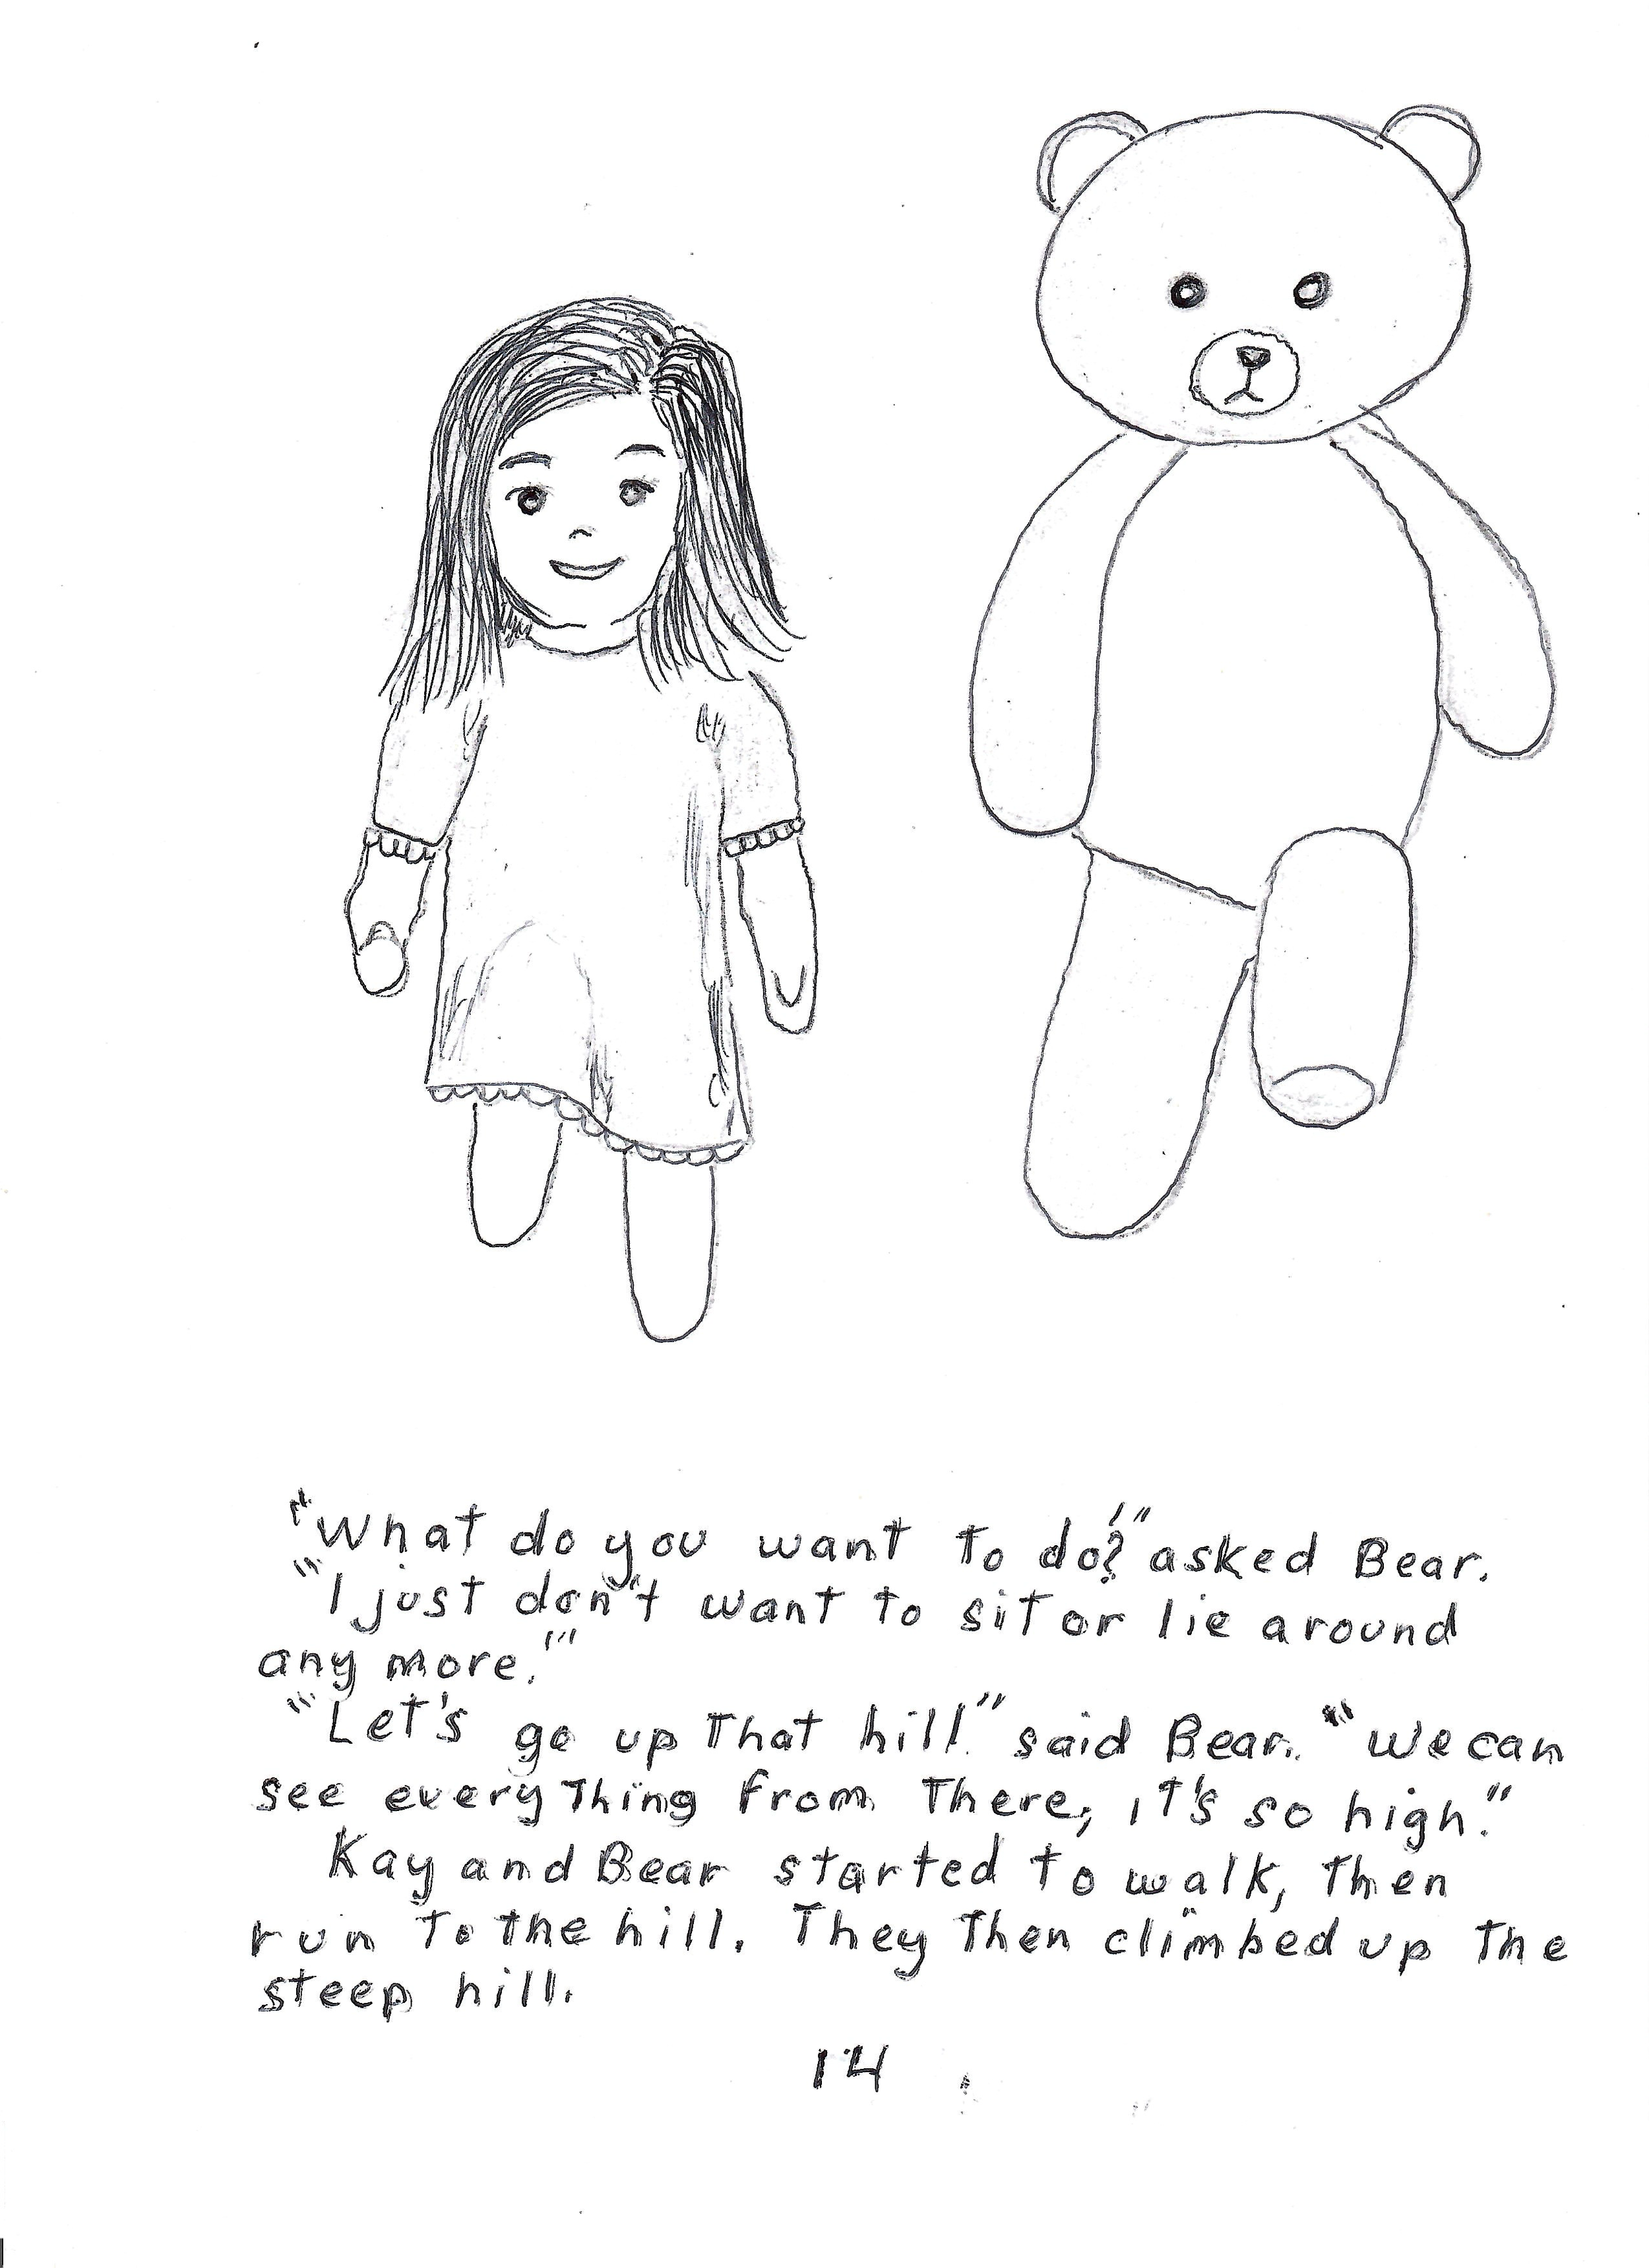 "What do you want to do?" asked Bear.
"I just don't want to sit or lie around
any more."
"Let's go up that hill." said Bear. "We can
see everything from there, it's so high."
Kay and Bear started to walk, then
run to the hill. They then climbed up the
steep hill.
14